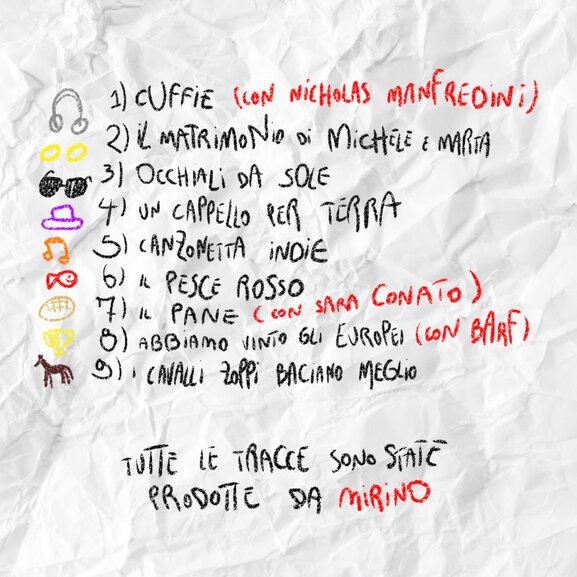 1) CUFFIE (CON NICHOLAS MANFREDINI)
2) IL MATRIMONIO DI MICHELE E MARTA
3) OCCHIALI DA SOLE
4) UN CAPPELLO PER TERRA
5) CANZONETTA INDIE
6) IL PESCE ROSSO
7) IL PANE (CON SARA CONATO)
8) ABBIAMO VINTO GLI EUROPEI (CON BARF)
9) I CAVALLI ZOPPI BACIANO MEGLIO
TUTTE LE TRACCE SONO STATE
PRODOTTE DA MIRINO